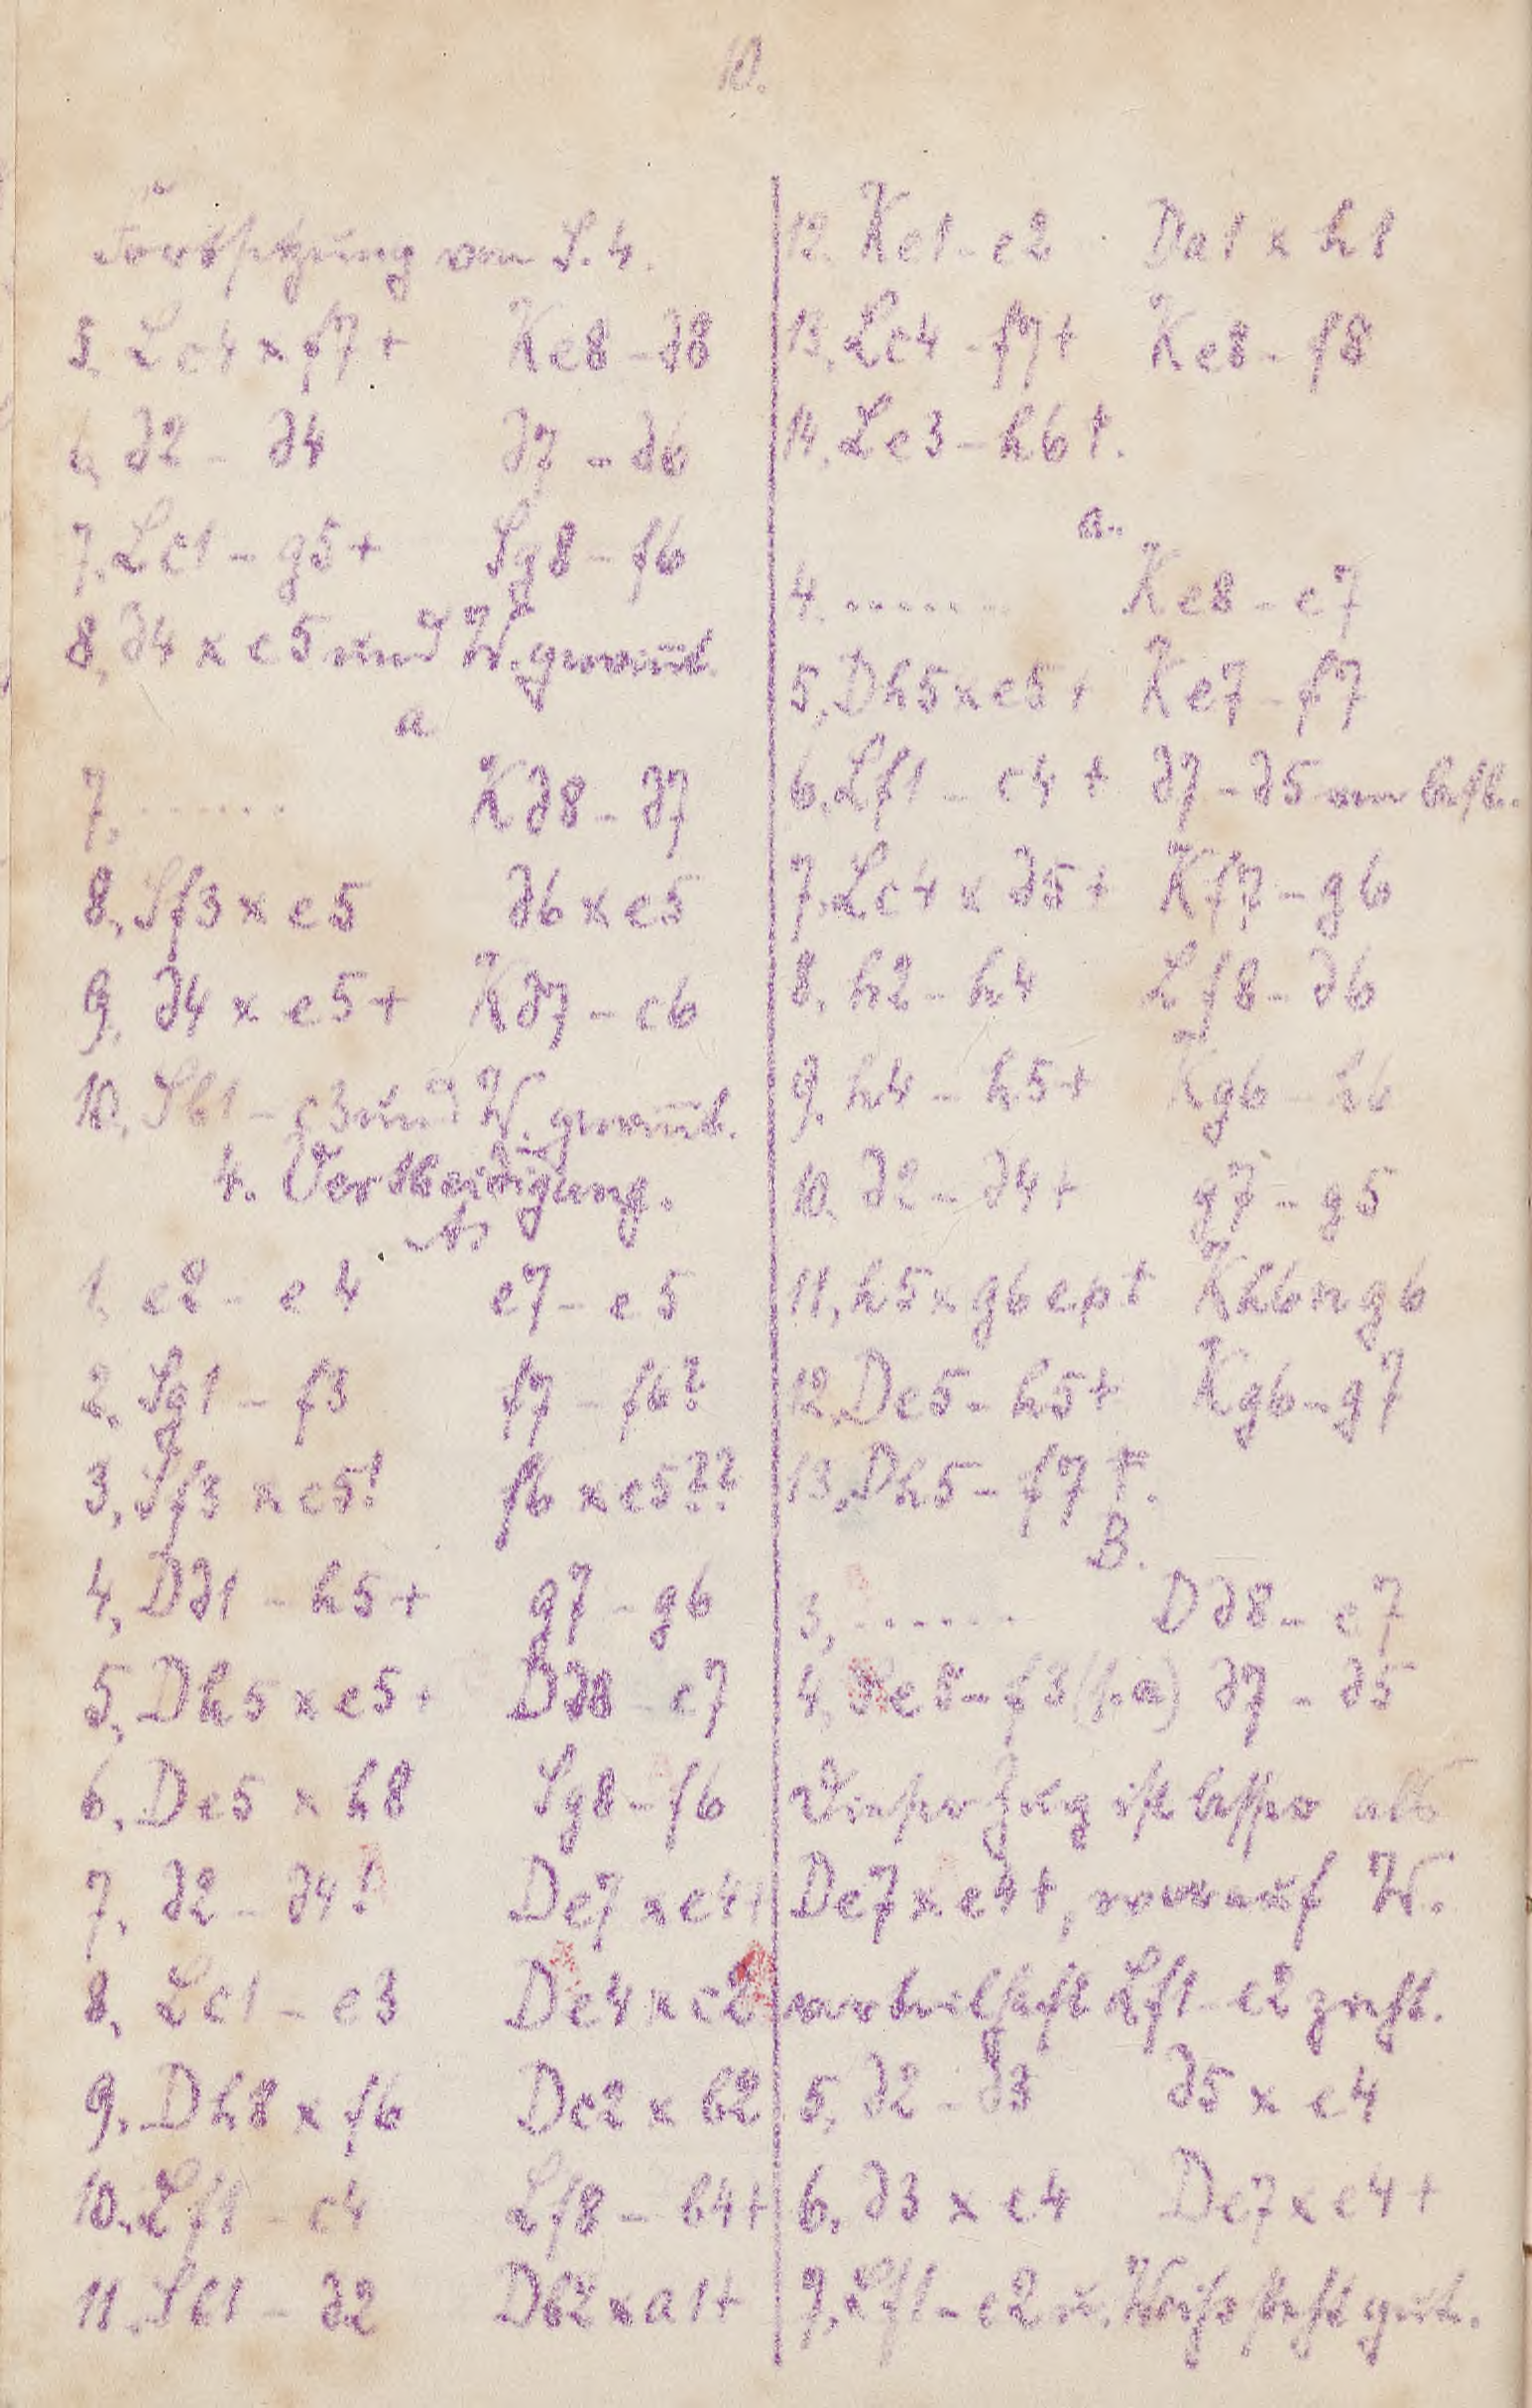 10.
Fortsetzung von S. 4.
5. Lc4 x f7 + Ke8 - d8
6. d2 - d4 d7 - d6
7. Lc1 - g5 + Sg8 - f6
8. d4 x e5 und W. gewinnt.
a
7. ...... Kd8 - d7
8. Sf3 x e5 d6 x e5
9. d4 x e5 + Kd7 - c6
10. Sb1 - c3 und W. gewinnt.
4. Verteidigung.
A.
1. e2 - e4 e7 - e5
2. Sg1 - f3 f7 - f6?
3. Sf3 x e5! f6 x e5??
4. Dd1 - h5 + g7 - g6
5. Dh5 x e5 + Dd8 - e7
6. De5 x h8 Sg8 - f6
7. d2 - d4! De7 x e4+
8. Lc1 - e3 De4 x c2
9. Dh8 x f6 Dc2 x b2
10. Lf1 - c4 Lf8 - b4+
11. Sb1 - d2 Db2 x a1+
12. Ke1 - e2 Da1 x h1
13. Lc4 - f7+ Ke8 - f8
14. Le3 - h6 †.
a.
4. ....... Ke8 - e7
5. Dh5 x e5 + Ke7 - f7
6. Lf1 - c4 + d7 - d5 am best.
7. Lc4 x d5 + Kf7 - g6
8. h2 - h4 Lf8 - d6
9. h4 - h5 + Kg6 - h6
10. d2 - d4 + g7 - g5
11. h5 x g6 e.p † Kh6 x g6
12. De5 - h5 + Kg6 - g7
13. Dh5 - f7 †.
B.
3. ...... Dd8 - e7
4. Se5 - f3 (s. a) d7 - d5
Dieser Zug ist besser als
De7 x e4+, worauf W.
vorteilhaft Lf1 - e2 zieht.
5. d2 - d3 d5 x e4
6. d3 x e4 De7 x e4 +
7. Lf1 - e2 u. Weiß steht gut.